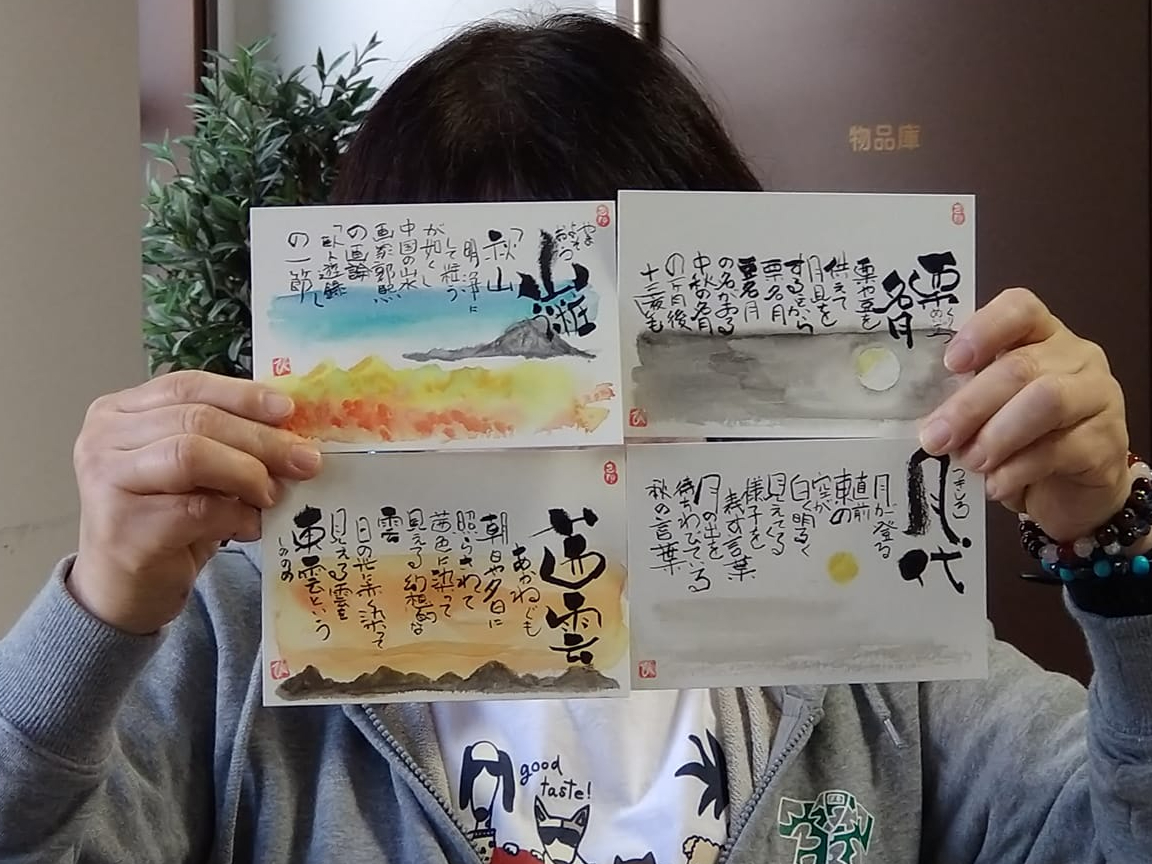 物品庫
山粧う
「秋山
明浄に
して粧う
が如くし
中国の山水
画家郭熙
の画論
「臥遊録」
の一節
栗名月
栗や豆を
供えて
月見を
するから
栗名月
豆名月
の名がある
中秋の名月
の一ヶ月後
十三夜も
茜雲
あかねぐも
朝日や夕日に
照らされて
茜色に染って
見える幻想的な
雲
日の光に赤く染って
見える雲を
東雲という
しののめ
月代
つきしろ
月が登る
直前
東の
空が
白く明るく
見えてる
様子を
表す言葉
月の出を
待ちわびている
秋の言葉
good
taste!